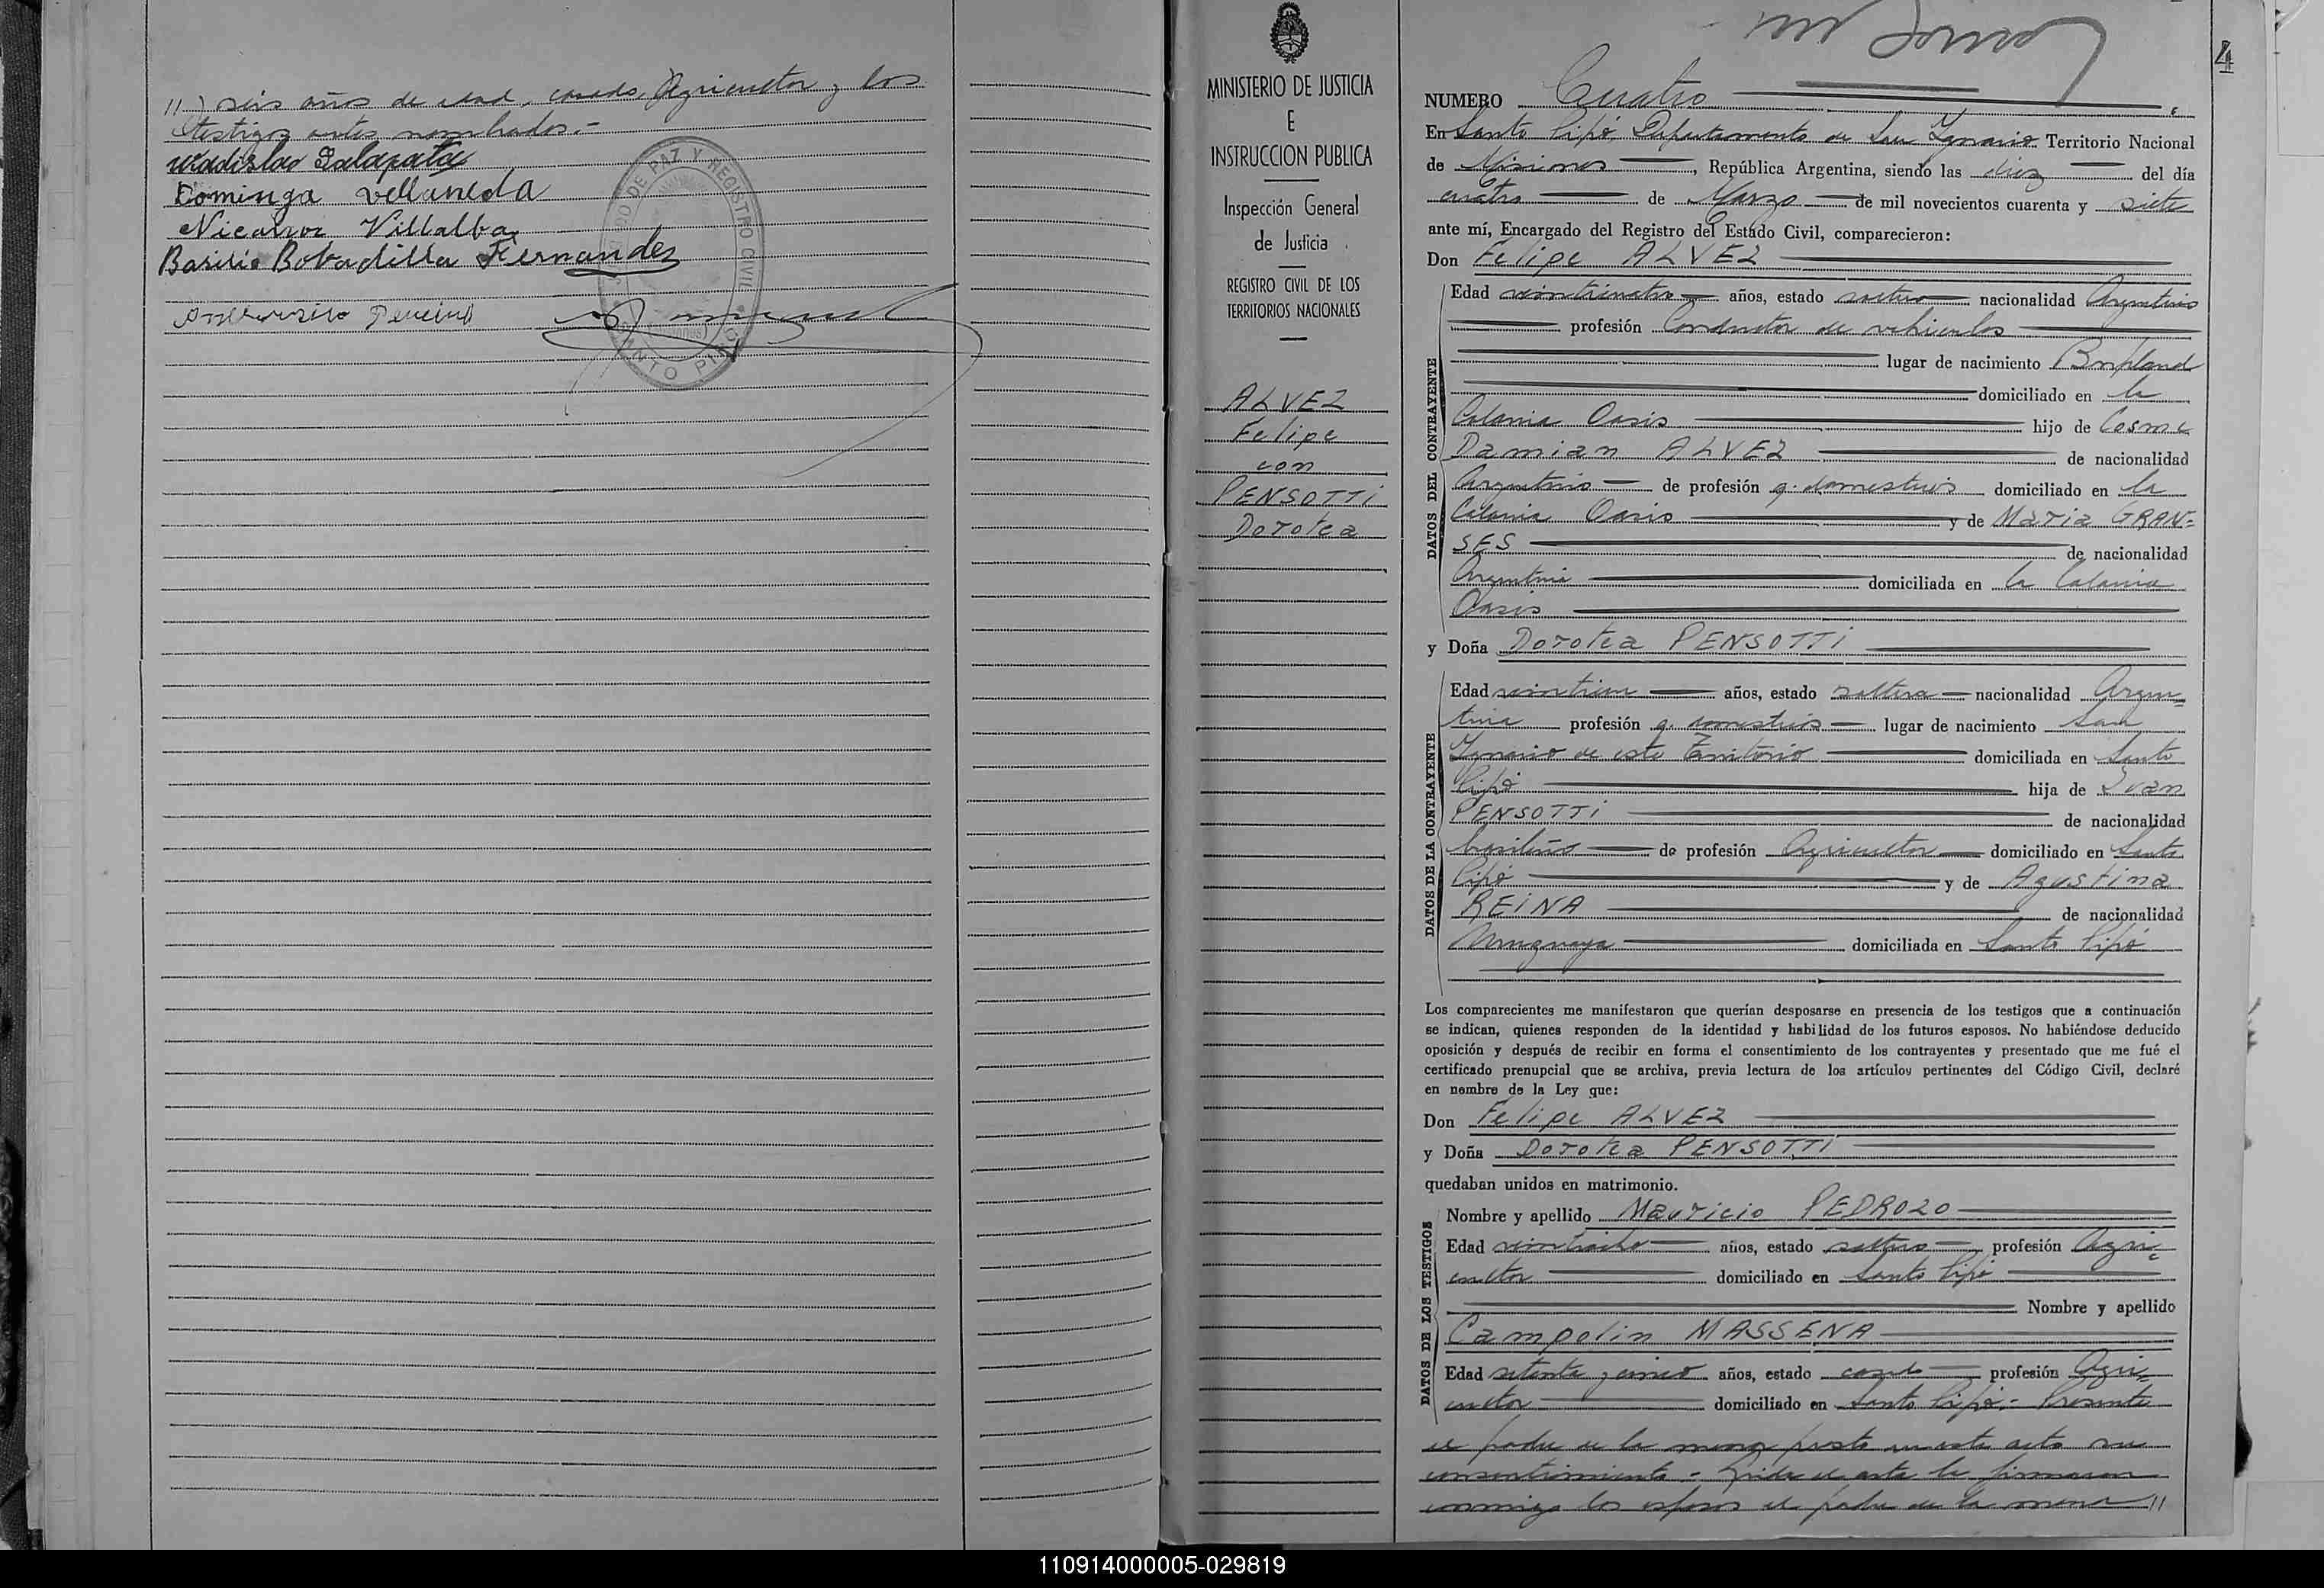 //) seis años de edad, casado, Agricultor y los
testigos antes nombrados.-
Wladislao Zalapata
Dominga Vellaneda
Nicanor Villalba
Basilio Bobadilla Fernandez
JUZGADO DE PAZ Y REGISTRO CIVIL
SANTO PIPO
MINISTERIO DE JUSTICIA
E
INSTRUCCION PUBLICA
Inspección General
de Justicia
REGISTRO CIVIL DE LOS
TERRITORIOS NACIONALES
ALVEZ
Felipe
con
PENSOTTI
Dorotea
4
NUMERO Cuatro
En Santo Pipó, Departamento de San Ignacio Territorio Nacional
de Misiones, República Argentina, siendo las diez del día
cuatro de Marzo de mil novecientos cuarenta y siete
ante mí, Encargado del Registro del Estado Civil, comparecieron:
Don Felipe ALVEZ
DATOS DEL CONTRAYENTE
Edad veinticuatro años, estado soltero nacionalidad Argentino
profesión Conductor de vehiculos
lugar de nacimiento Bonpland
domiciliado en la
Colonia Oasis hijo de Cosme
Damian ALVEZ de nacionalidad
Argentino de profesión q. domesticos domiciliado en la
Colonia Oasis y de Maria GRAN=
SES de nacionalidad
Argentina domiciliada en la Colonia
Oasis
y Doña Dorotea PENSOTTI
DATOS DE LA CONTRAYENTE
Edad veintiun años, estado soltera nacionalidad Argen=
tina profesión q. domesticos lugar de nacimiento San
Ignacio de este Territorio domiciliada en Santo
Pipó hija de Ivan
PENSOTTI de nacionalidad
brasileño de profesión Agricultor domiciliado en Santo
Pipó y de Agustina
REINA de nacionalidad
Uruguaya domiciliada en Santo Pipó
Los comparecientes me manifestaron que querían desposarse en presencia de los testigos que a continuación
se indican, quienes responden de la identidad y habilidad de los futuros esposos. No habiéndose deducido
oposición y después de recibir en forma el consentimiento de los contrayentes y presentado que me fué el
certificado prenupcial que se archiva, previa lectura de los artículos pertinentes del Código Civil, declaré
en nombre de la Ley que:
Don Felipe ALVEZ
y Doña Dorotea PENSOTTI
quedaban unidos en matrimonio.
DATOS DE LOS TESTIGOS
Nombre y apellido Mauricio PEDROZO
Edad veintiocho años, estado soltero profesión Agri=
cultor domiciliado en Santo Pipó
Nombre y apellido
Campolin MASSENA
Edad setenta y cinco años, estado casado profesión Agri=
cultor domiciliado en Santo Pipó.- Presente
el padre de la menor presto en este acto su
consentimiento.- Leida el acta la firmaron
conmigo los esposos el padre de la menor //
110914000005-029819